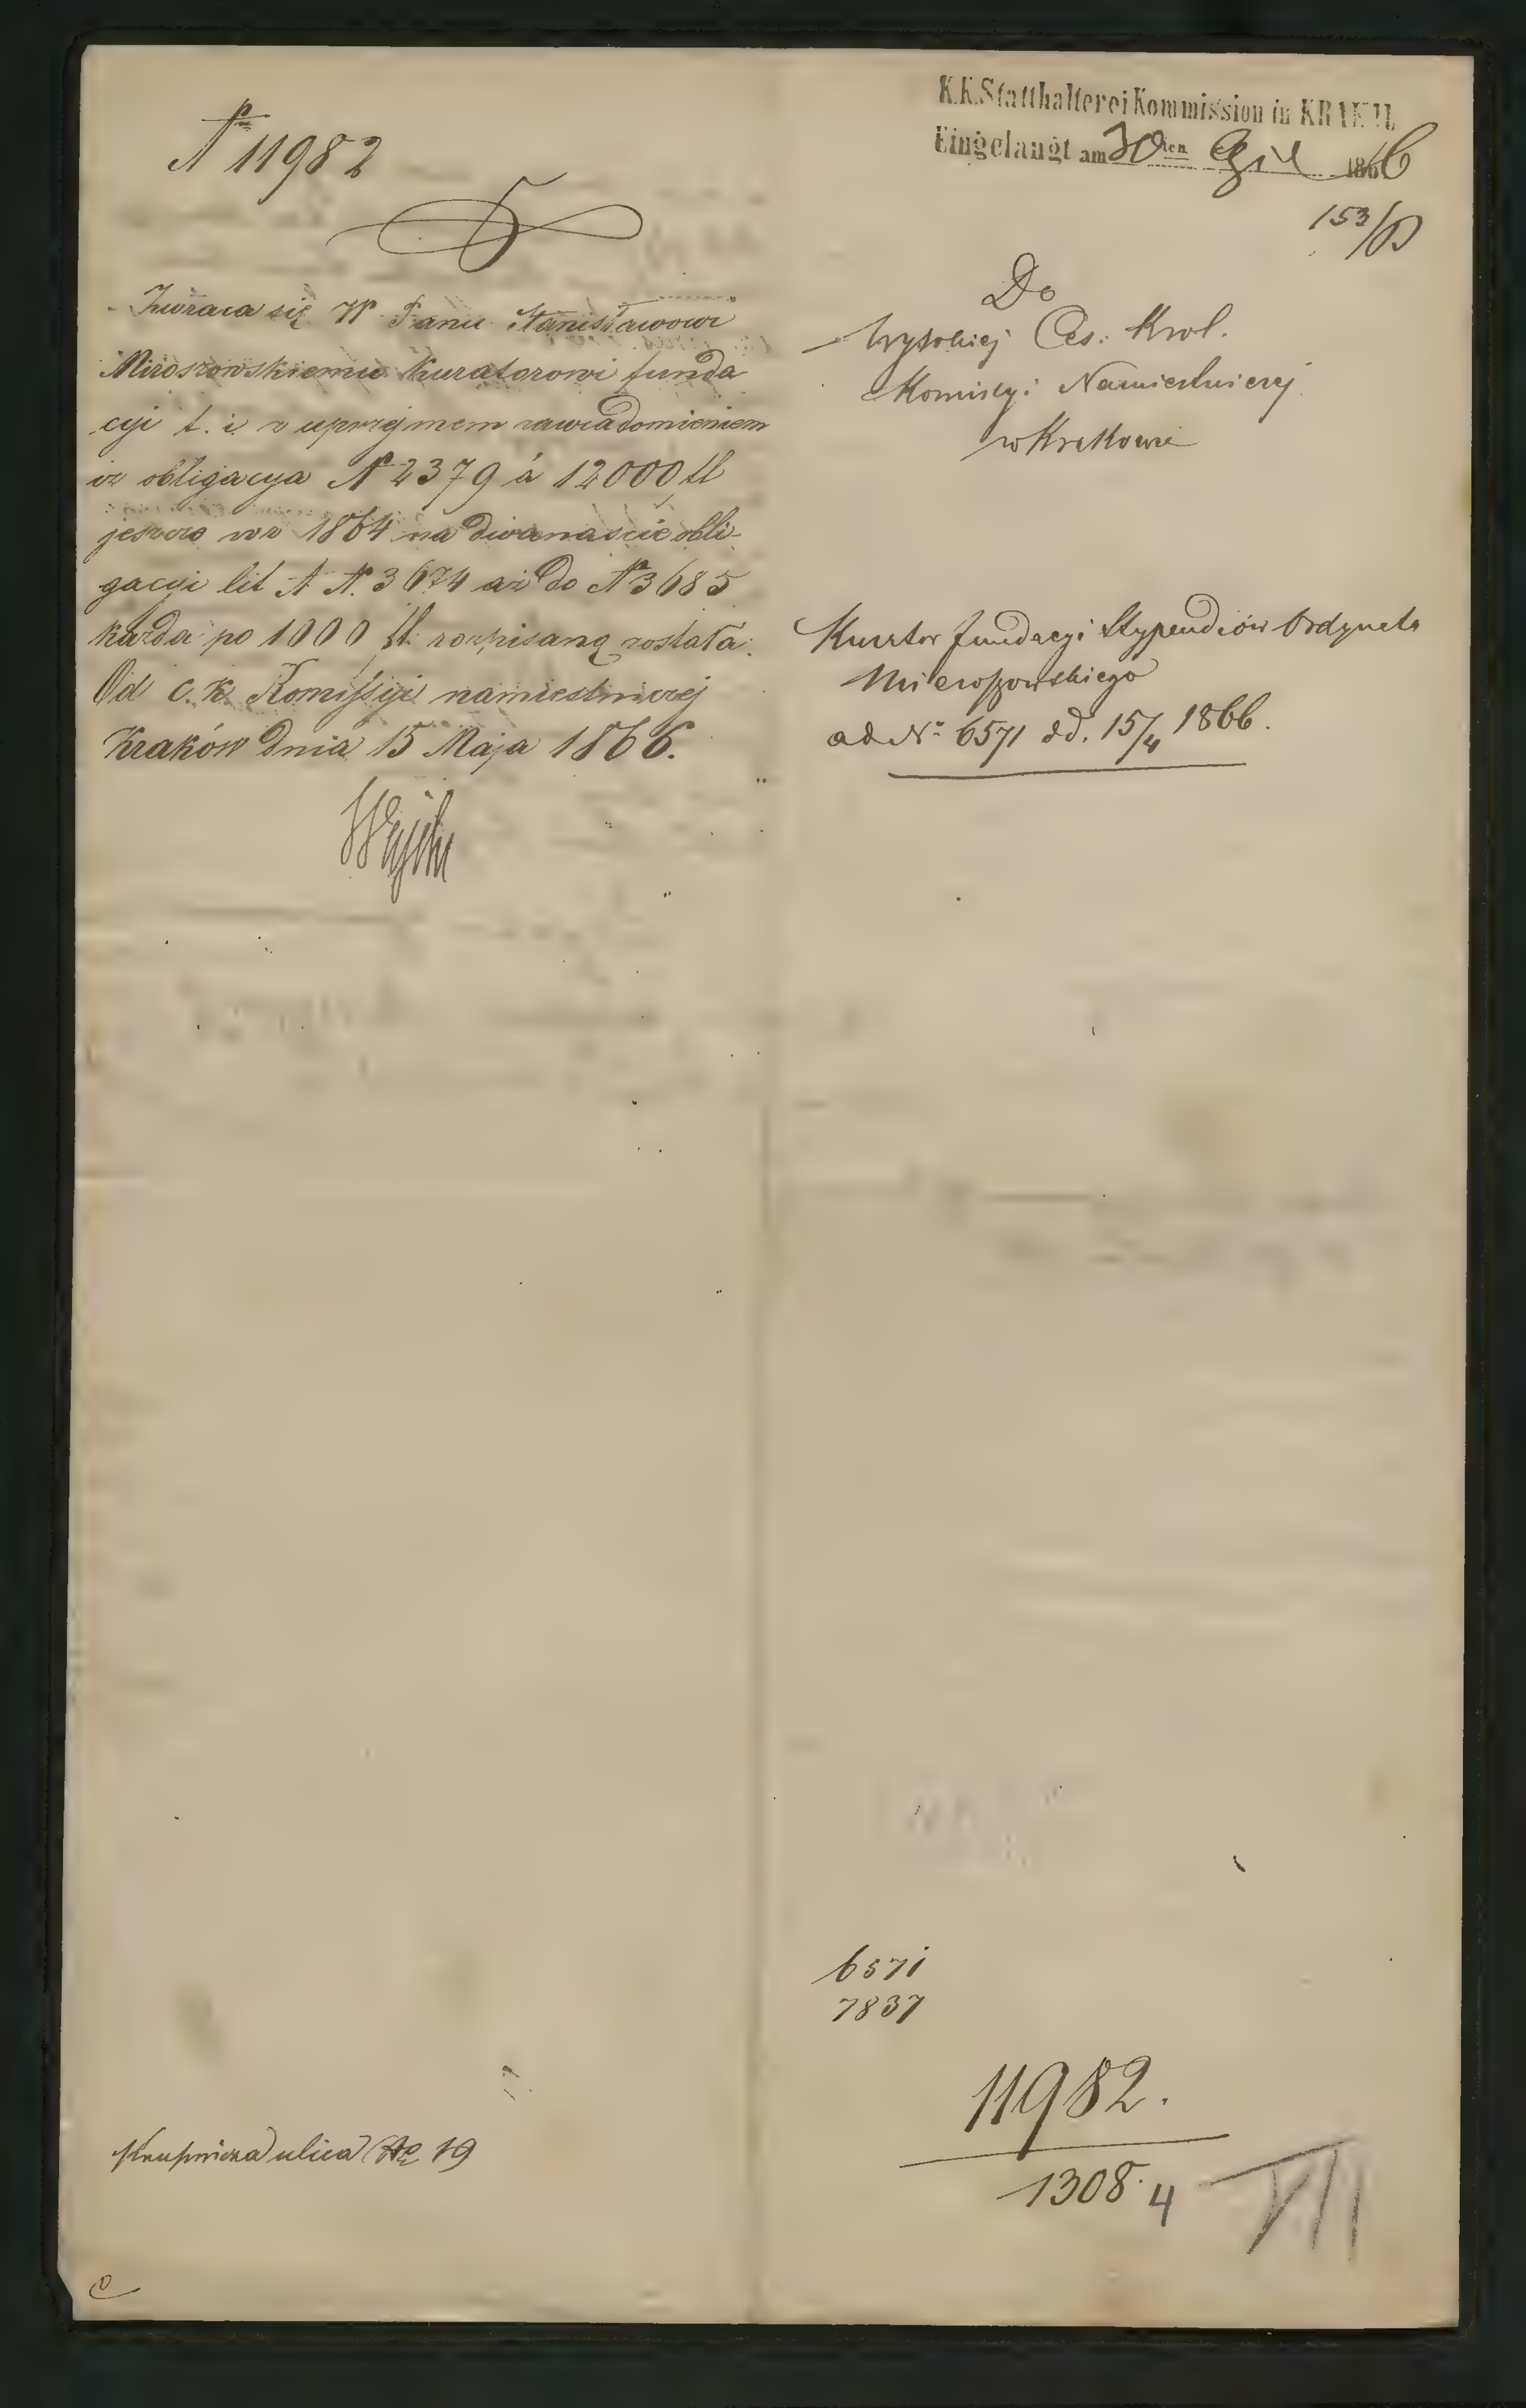 Nr 11982
Zwraca się W Panu Stanisławowi
Miroszowskiemu Kuratorowi funda
cyi t. i. z uprzejmem zawiadomieniem
iż obligacya N 2379 á 12000 fl
jeszcze w r 1864 na dwanaście obli-
gacyi lit A N. 3674 aż do N 3685
każda po 1000 fl. rozpisaną została.
Od c. k. Komissyi namiestniczej
Kraków dnia 15 Maja 1866.
K.K. Statthalterei Kommission in KRAKAU
Eingelangt am 30ten April 1866
153/
Do
Wysokiej Ces. Krol.
Komisyi Namiestniczej
w Krakowie
Kurator fundacyi Stypendiów Ordynata
Mieroszowskiego
ad No 6571 dd. 15/4 1866.
6571
7837
11982.
1308.4
VII
Krupnicza ulica No 19